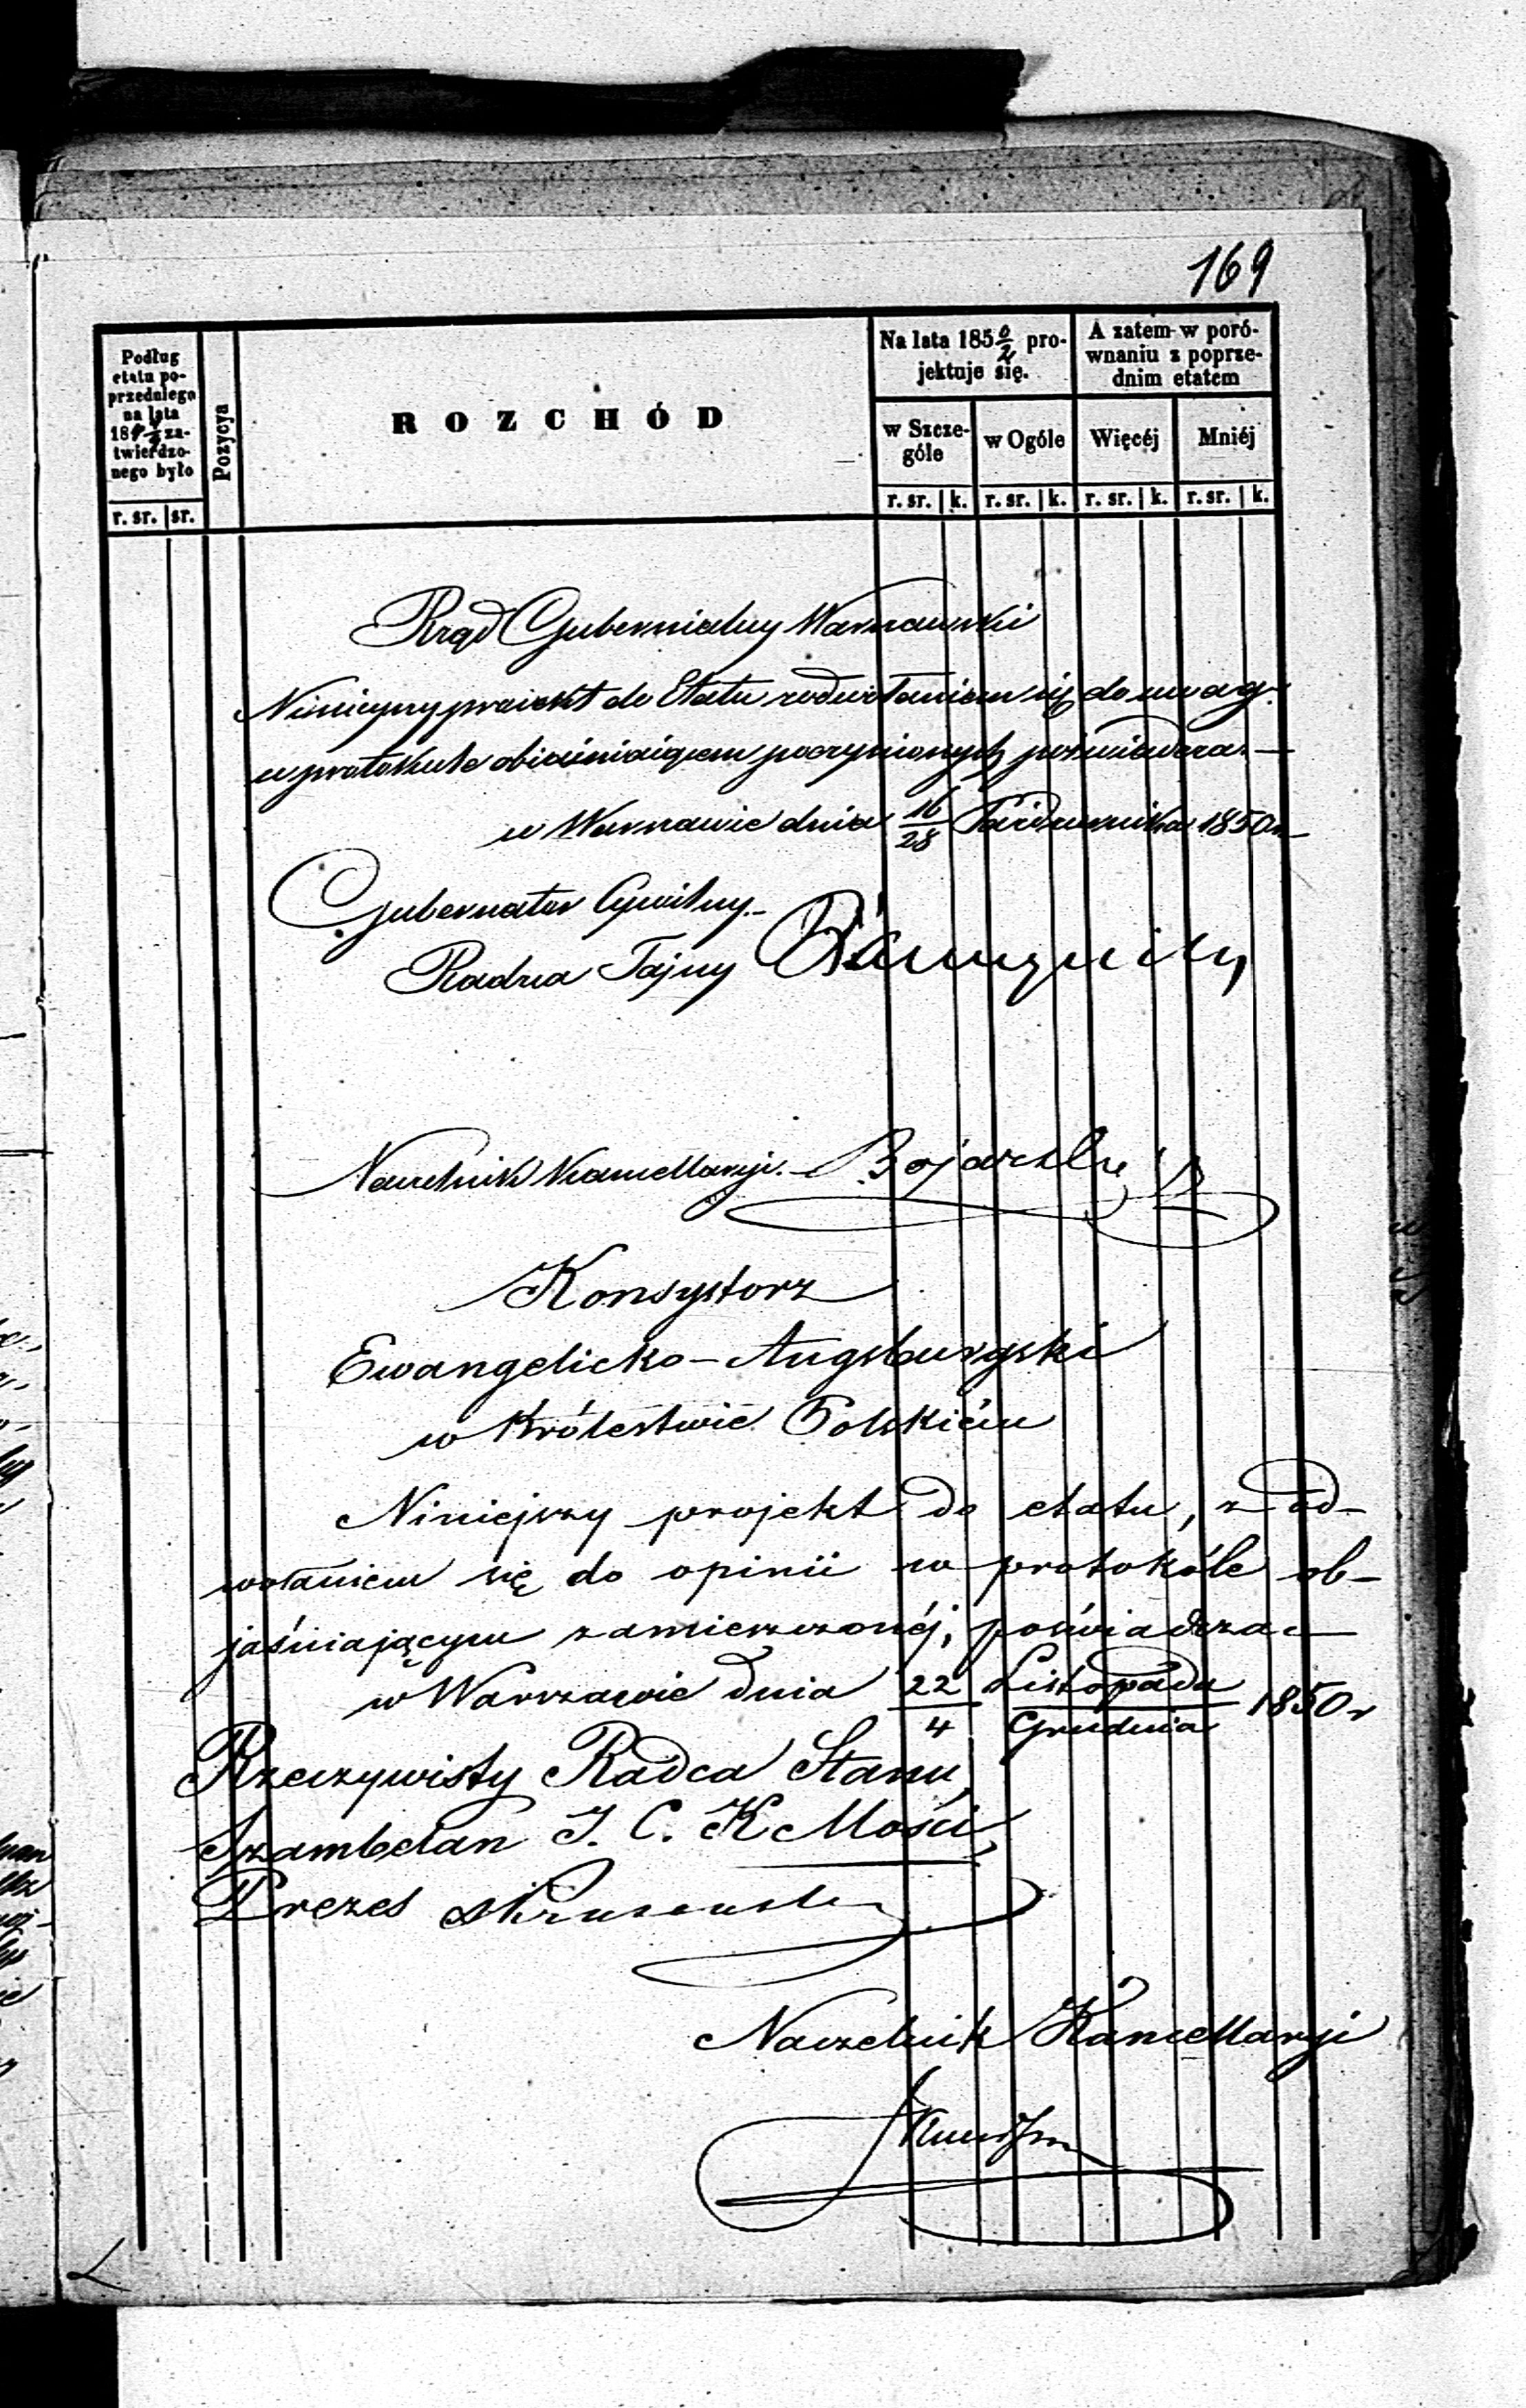 169
Podług
etatu po-
przedniego
na lata
184 za-
twierdzo-
nego było
r. sr. | sr.
Pozycya
ROZCHÓD
Na lata 185 0/2 pro-
jektuje się.
w Szcze-
góle
w Ogóle
r. sr. | k. r. sr. | k.
A zatem w poró-
wnaniu z poprze-
dnim etatem
Więcéj
Mniéj
r. sr. | k. r. sr. | k.
Rząd Gubernialny Warszawski
Niniejszy proiekt do Etatu z odwołaniem się do uwag
w protokule obiaśniaiącem poczynionych poświadcza.—
w Warszawie dnia 16/28 Października 1850 r.
Gubernator Cywilny
Radca Tajny
Naczelnik Kancellaryi.
Konsystorz
Ewangelicko-Augsburgski
w Królestwie Polskiém
Niniejszy projekt do etatu, z od-
wołaniem się do opinii w protokóle ob-
jaśniającym zamieszczonéj, poświadcza
w Warszawie dnia 22/4 Listopada/Grudnia 1850 r
Rzeczywisty Radca Stanu,
Szambelan J. C. K Mości,
Prezes
Naczelnik Kancellaryi